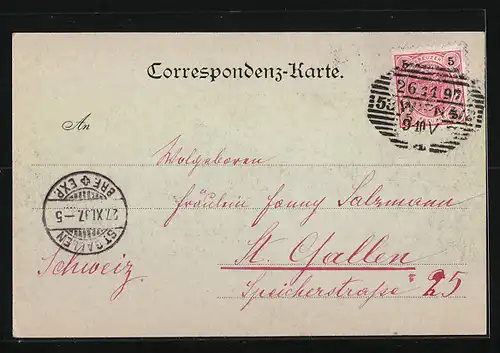 5 KREUZER 5
Correspondenz-Karte.
26.11.97
WIEN
An
Wolgeboren
Fräulein Fanny Salzmann
ST. GALLEN
27.XI.97.–5
BRF. EXP.
St. Gallen
Schweiz
Speicherstraße 25